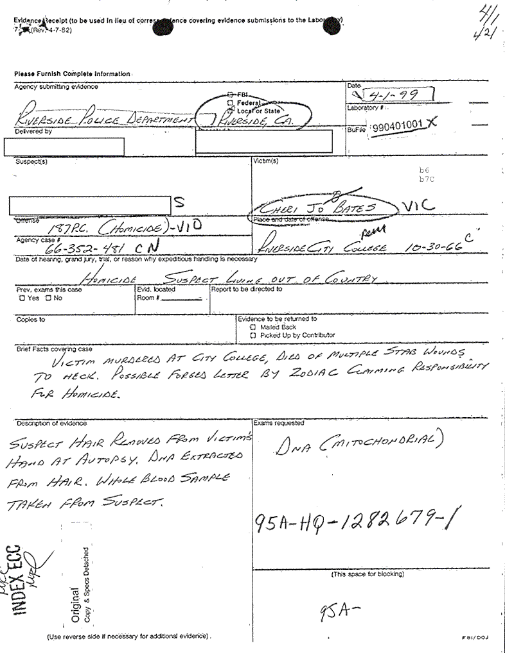 Evidence Receipt (to be used in lieu of correspondence covering evidence submissions to the Laboratory)
(Rev. 4-7-82)
4/1
4/21
Please Furnish Complete Information
Agency submitting evidence
FBI
Federal
Local or State
Date
4-1-99
RIVERSIDE POLICE DEPARTMENT
RIVERSIDE, CA.
Laboratory #
Delivered by
BuFile
990401001 X
Suspect(s)
Victim(s)
b6
b7C
S
CHERI JO BATES
VIC
Offense
187 P.C. (HOMICIDE)-VID
Place and date of offense
Agency case #
66-352-481 CN
RIVERSIDE CITY COLLEGE 10-30-66 C
Date of hearing, grand jury, trial, or reason why expeditious handling is necessary
HOMICIDE SUSPECT LIVING OUT OF COUNTRY
Prev. exams this case
Yes No
Evid. located
Room #
Report to be directed to
Copies to
Evidence to be returned to
Mailed Back
Picked Up by Contributor
Brief Facts covering case
VICTIM MURDERED AT CITY COLLEGE, DIED OF MULTIPLE STAB WOUNDS
TO NECK. POSSIBLE FORGED LETTER BY ZODIAC CLAIMING RESPONSIBILITY
FOR HOMICIDE.
Description of evidence
SUSPECT HAIR REMOVED FROM VICTIM'S
HAND AT AUTOPSY. DNA EXTRACTED
FROM HAIR. WHOLE BLOOD SAMPLE
TAKEN FROM SUSPECT.
Exams requested
DNA (MITOCHONDRIAL)
95A-HQ-1282679-1
INDEX ECC
Original
Copy & Specs Detached
(This space for blocking)
95A-
(Use reverse side if necessary for additional evidence).
FBI/DOJ